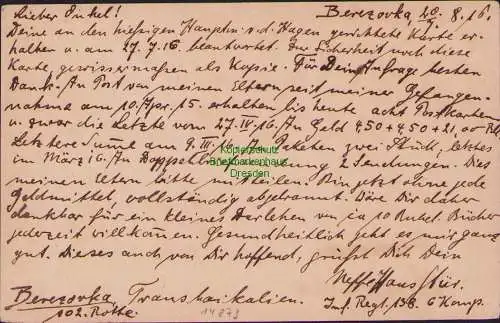 Berezovka, 20. 8. 16.
Lieber Onkel!
Deine an den hiesigen Hauptm. v. d. Hagen gerichtete Karte er-
halten u. am 27. 7. 16 beantwortet. Zur Sicherheit noch diese
Karte, gewissermaßen als Kopie. Für Dein Anfrage besten
Dank. An Post von meinen Eltern seit meiner Gefangen-
nahme am 10. Apr. 15. erhalten bis heute acht Postkarten
u. zwar die Letzte vom 27. IV. 16. An Geld 4,50 + 4,50 + 21,00 Rbl
Letztere Sume am 9. III. Paketen zwei Stück, letztes
im März 16. An 2 Sendungen. Dies
meinen Eltern bitte mitteilen. Bin jetzt ohne jede
Geldmittel, vollständig abgebrannt. Wäre Dir daher
dankbar für ein kleines Darlehen von ca 10 Rubel. Bücher
jederzeit willkommen. Gesundheitlich geht es mir ganz
gut. Dieses auch von Dir hoffend, grüßt Dich Dein
Neffe Hans
Berezovka, Transbaikalien. Inf. Regt. 138. 6 Komp.
102. Rotte. 14273
Kopierschutz
Briefmarkenhaus
Dresden